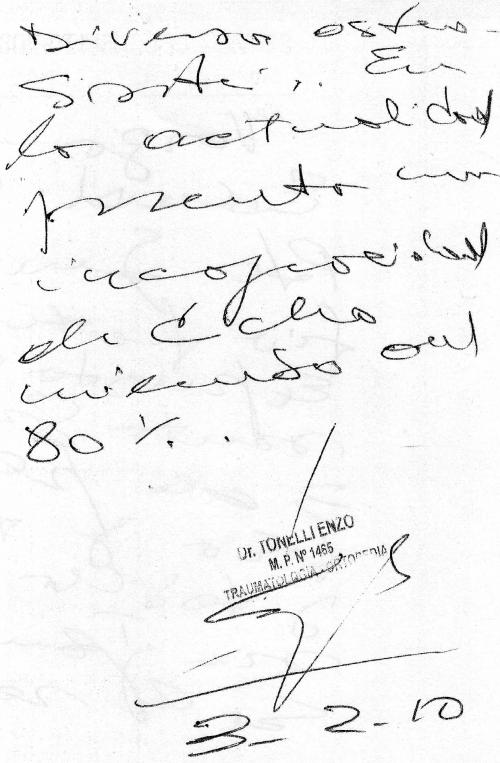 Diversas osteo-
síntesis. En
la actualidad
presenta una
incapacidad
de dicho
miembro del
80 %.
Dr. TONELLI ENZO
M. P. Nº 1465
TRAUMATOLOGIA - ORTOPEDIA
3-2-10